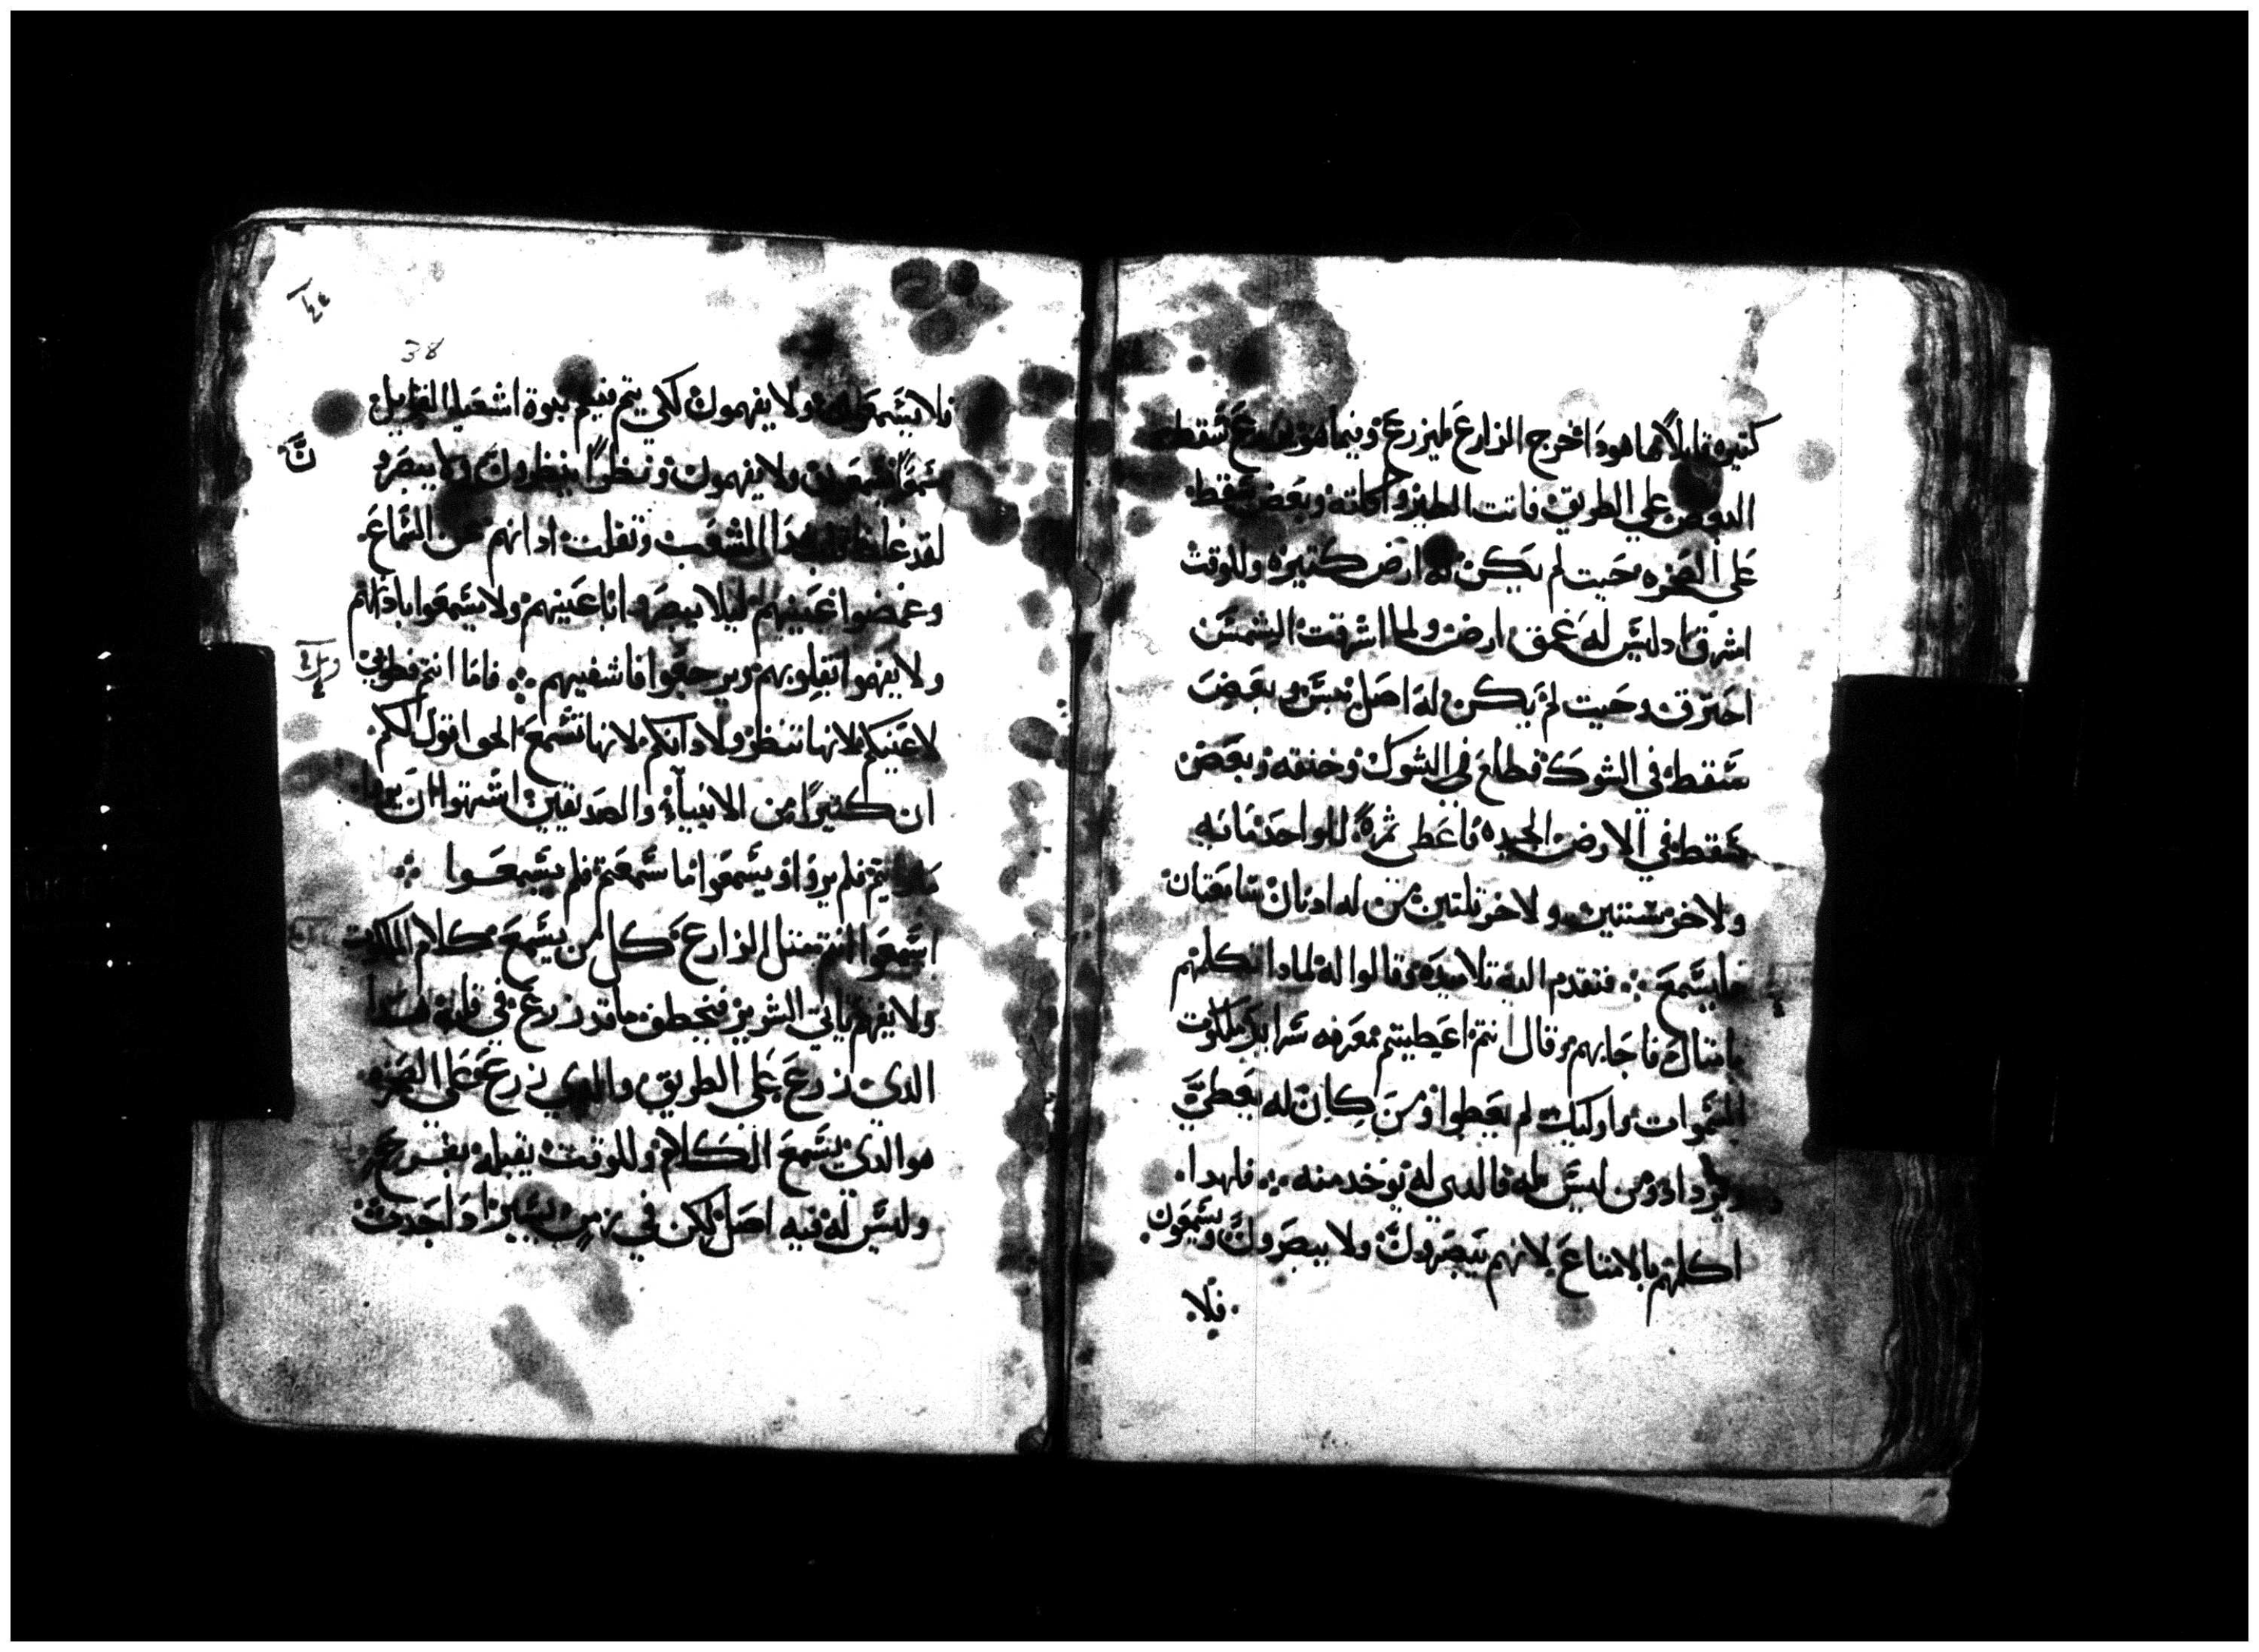 كتيره قايلاً هاهوذا خرج الزارع ليزرع وفيما هو يزرع سقط
البعض على الطريق فاتت الطير واكلته وبعض سقط
على الصخره حيت لم يكن له ارض كتيره وللوقت
اشرق اد ليس له عمق ارض ولما اشرقت الشمس
احترق وحيت لم يكن له اصل يبس وبعض
سقط في الشوك فطلع في الشوك وخنقه وبعض
سقط في الارض الجيده فاعطى ثمرةً للواحد مايه
ولاخر ستين ولاخر تلتين من له ادنان سامعتان
فليسمع فتقدم اليه تلاميده وقالوا له لمادا تكلمهم
بامتال فاجابهم وقال انتم اعطيتم معرفه سراير ملكوت
السموات واوليك لم يعطوا ومن كان له يعطى
ويزداد ومن ليس له فالدي له يوخد منه فلهدا
اكلمهم بالامتال لانهم يبصرون ولا يبصرون ويسمعون
فلا
38
فلا يسمعون ولا يفهمون لكي يتم فيهم نبوة اشعيا القايل
سمعاً تسمعون ولا يفهمون ونظراً ينظرون ولا يبصرو
لقد غلظ قلب هدا الشعب وتقلت ادانهم عن السماع
وغمضوا عينيهم ليلا يبصروا باعينهم ولا يسمعوا باذانهم
ولا يفهموا بقلوبهم ويرجعوا فاشفيهم فاما انتم فطوبى
لاعينكم لانها تنظر ولادانكم لانها تسمع الحق اقول لكم
ان كتيراً من الانبيآء والصديقين اشتهوا ان يروا
ما رايتم فلم يروا ويسمعوا ما سمعتم فلم يسمعوا
اسمعوا انتم متل الزارع كل من يسمع كلام الملكوت
ولا يفهم ياتي الشرير فيخطف ما قد زرع في قلبه هدا
الدي زرع على الطريق والدي زرع على الصخره
هو الدي يسمع الكلام وللوقت يقبله بفرح
وليس له فيه اصل لكن في زمن يسير اد احدث